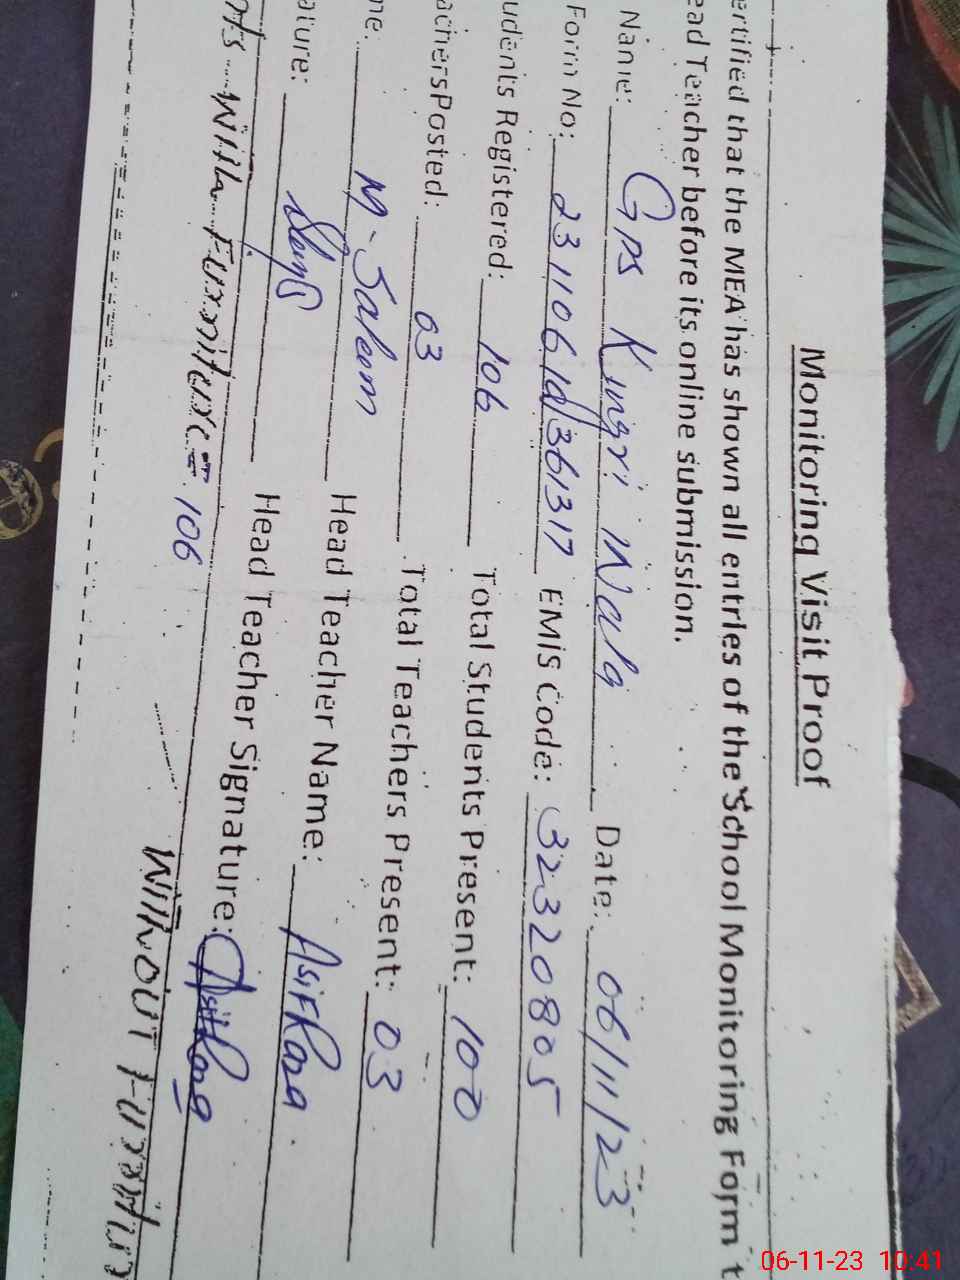 Monitoring Visit Proof
ertified that the MEA has shown all entries of the School Monitoring Form t
ead Teacher before its online submission.
Name: Gps Kingri Wala Date: 06/11/23
Form No: EMIS Code: 32320805
udents Registered: 106 Total Students Present: 100
achers Posted: 03 Total Teachers Present: 03
me: M. Saleem Head Teacher Name: Asif Rana
ature: Head Teacher Signature:
nts With Furniture: 106 Without Furnitur
06-11-23 10:41